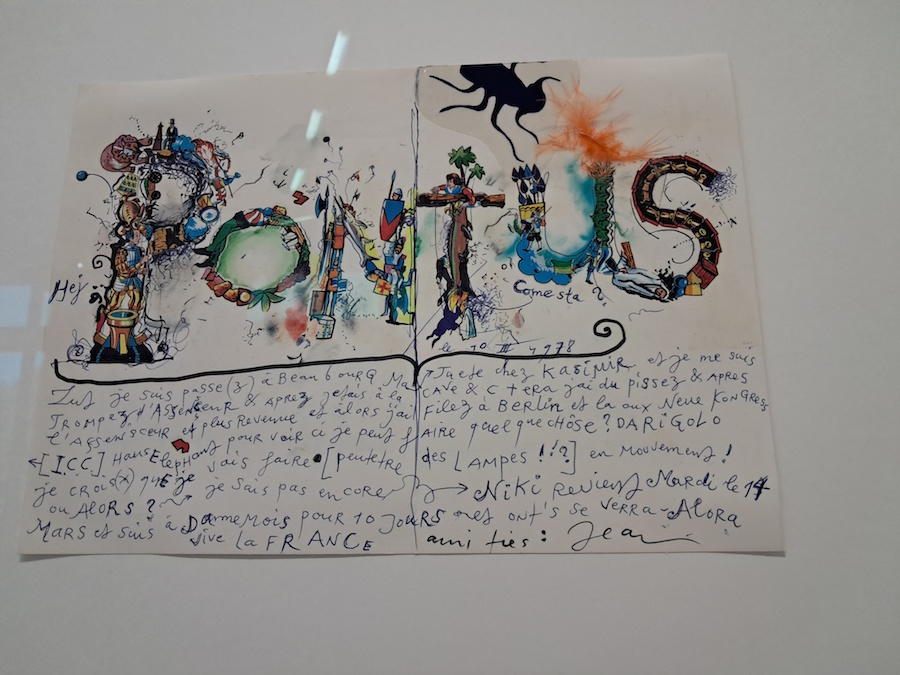 PONTUS
Hej
Come sta ?
le 10 III 1978
Zut je suis passe(z) à Beaubourg Ma
TROMPEZ d'ASSENCEUR & APREZ jetais à la
l'ASSENSCEUR et plus Revenue et alors j'ai
← [I.C.C.] HANS Elephant pour voir ci je peut f
je crois(x) que je vais faire [peutetre
ou ALORS ? je sais pas encore
MARS et suis à Dannemois pour 10 JOURS
Vive LA FRANCE
chez KASIMIR et je me suis
CAVE & C tera j'ai du pissez & APRES
Filez à BERLIN et la aux Neue KONGRESS
AIRE quelque CHÔSE ? DARIGOLO
des LAMPES !!?] en mouvement !
→ NiKi Revient Mardi le 14
ont's se verra - ALORA
amities : Jean